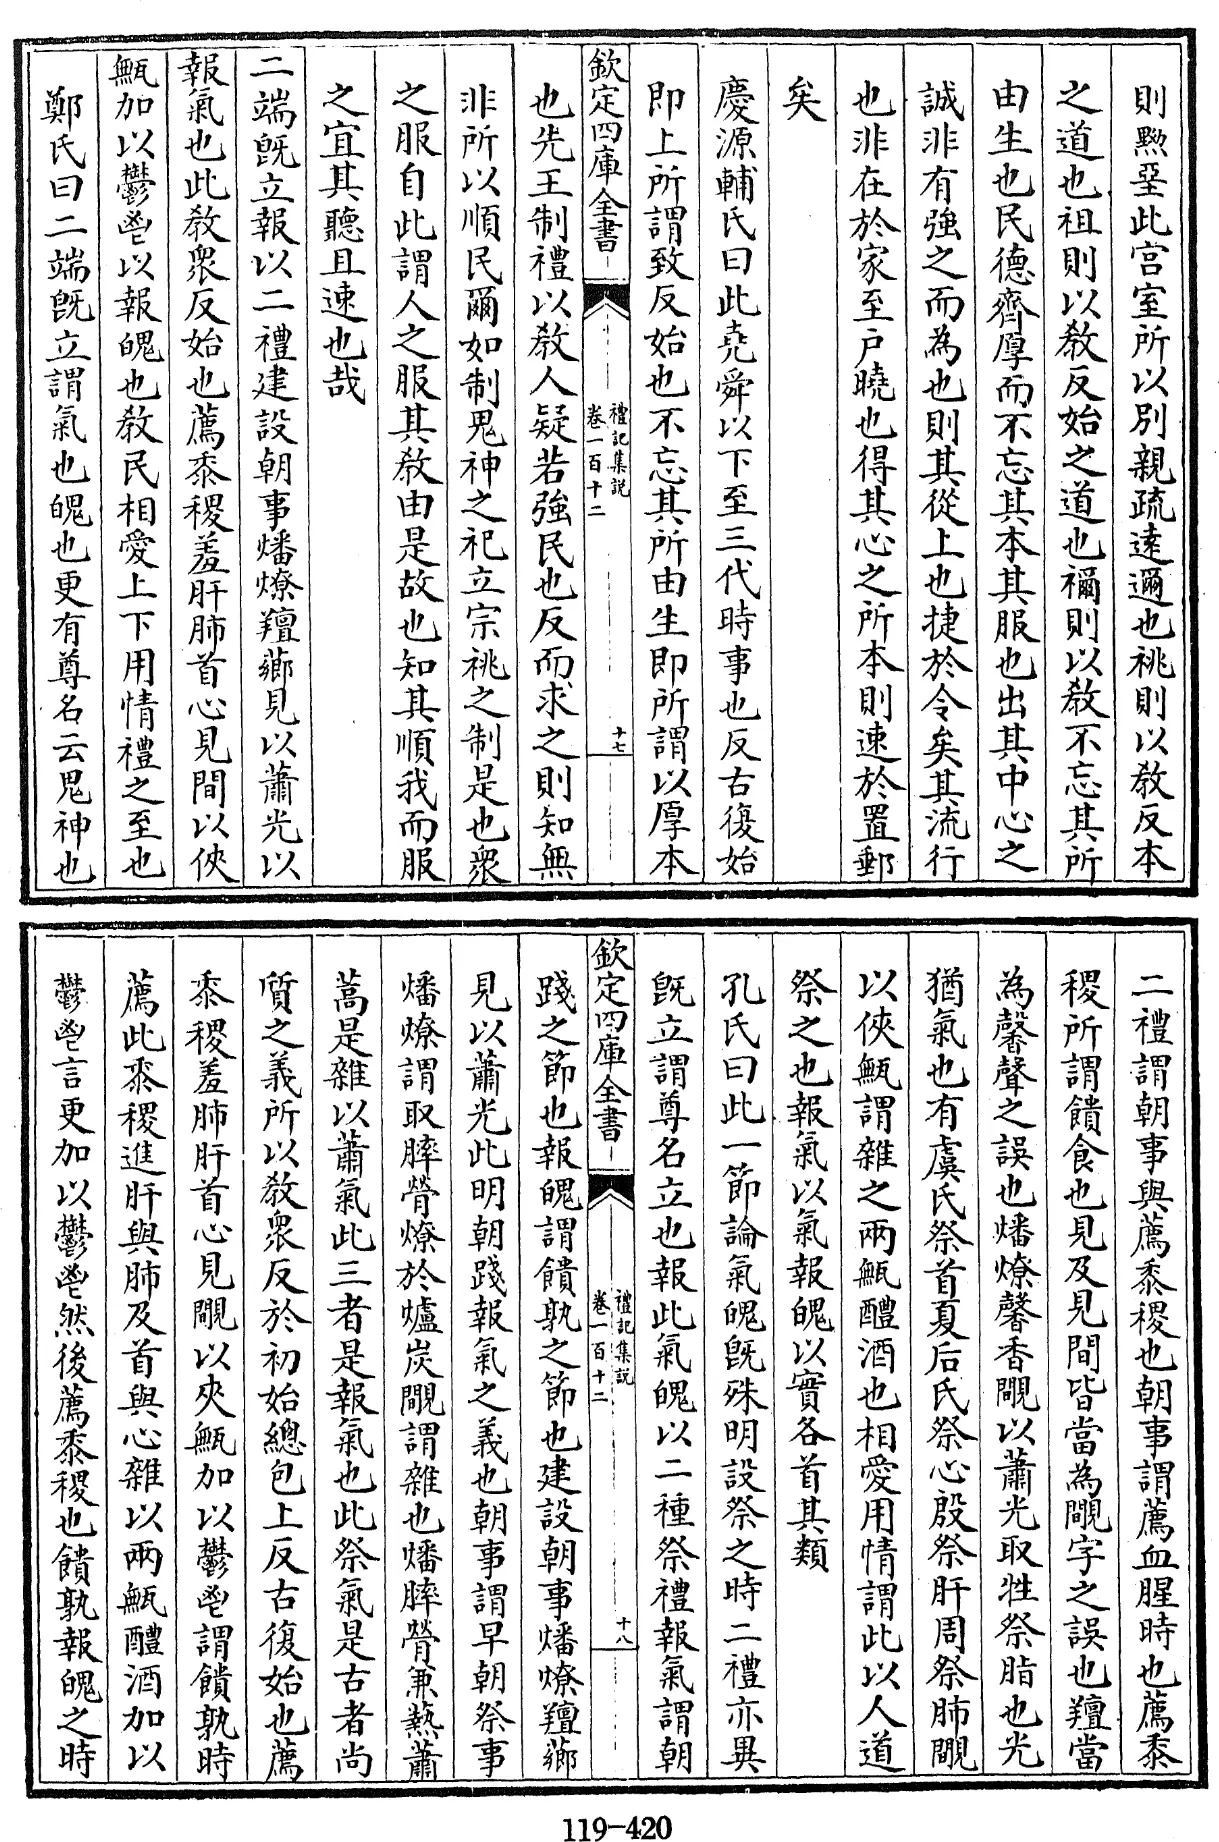 則黝堊此宫室所以別親疏逺邇也祧則以教反本
之道也祖則以教反始之道也禰則以教不忘其所
由生也民德齊厚而不忘其本其服也出其中心之
誠非有強之而為也則其從上也捷於令矣其流行
也非在於家至户曉也得其心之所本則速於置郵
矣
慶源輔氏曰此堯舜以下至三代時事也反古復始
即上所謂致反始也不忘其所由生即所謂以厚本
欽定四庫全書
禮記集説
卷一百十二
十七
也先王制禮以教人疑若強民也反而求之則知無
非所以順民爾如制鬼神之祀立宗祧之制是也衆
之服自此謂人之服其教由是故也知其順我而服
之宜其聽且速也哉
二端旣立報以二禮建設朝事燔燎羶薌見以蕭光以
報氣也此教衆反始也薦黍稷羞肝肺首心見間以俠
甒加以鬱鬯以報魄也教民相愛上下用情禮之至也
鄭氏曰二端旣立謂氣也魄也更有尊名云鬼神也
二禮謂朝事與薦黍稷也朝事謂薦血腥時也薦黍
稷所謂饋食也見及見間皆當為覸字之誤也羶當
為馨聲之誤也燔燎馨香覸以蕭光取牲祭脂也光
猶氣也有虞氏祭首夏后氏祭心殷祭肝周祭肺覸
以俠甒謂雜之兩甒醴酒也相愛用情謂此以人道
祭之也報氣以氣報魄以實各首其類
孔氏曰此一節論氣魄旣殊明設祭之時二禮亦異
旣立謂尊名立也報此氣魄以二種祭禮報氣謂朝
欽定四庫全書
禮記集説
卷一百十二
十八
踐之節也報魄謂饋孰之節也建設朝事燔燎羶薌
見以蕭光此明朝踐報氣之義也朝事謂早朝祭事
燔燎謂取膟膋燎於爐炭覸謂雜也燔膟膋兼爇蕭
蒿是雜以蕭氣此三者是報氣也此祭氣是古者尚
質之義所以教衆反於初始總包上反古復始也薦
黍稷羞肺肝首心見覸以夾甒加以鬱鬯謂饋孰時
薦此黍稷進肝與肺及首與心雜以兩甒醴酒加以
鬱鬯言更加以鬱鬯然後薦黍稷也饋孰報魄之時
119-420